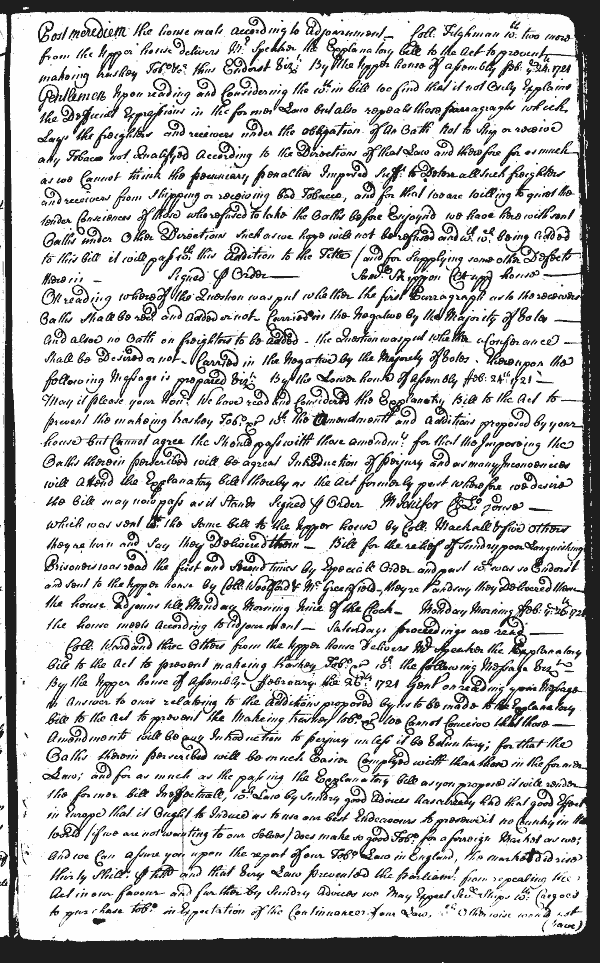 Post meridiem the house meets according to adjournment — Coll. Tilghman wth. two more
from the upper house delivers Mr. Speaker the Explanatory bill to the Act to prevent
making trashey Tobo. &c. thus Endorst Vizt. By the upper house of Assembly feb: ye. 24th. 1721
Gentlemen upon reading and Considering the wth.in bill we find that it not Only Explains
the Difficult Expressions in the former Law but also repeals those parragraphs which
Lays the freighters and receivers under the obligation of An Oath Not to Ship or receive
any Tobacco not Qualifyed According to the Directions of that Law and therefore for as much
as we Cannot think the pecuniary penalties Imposed Suft. to Deterr all such freighters
and receivers from Shipping or receiving bad Tobacco, and for that we are willing to quiet the
tender Consciences of those who refused to take the Oaths before Enjoynd we have herewith sent
Oaths under Other Directions such as we hope will not be refused and wch. wth. being Added
to this bill it will pass wth. this Addition to the Title (and for Supplying some other Defects
therein — Signed p Order — Saml. Skippon Cl upp house —
On reading whereof the Question was put whether the first Parragraph as to the receivers
Oaths Shall be red and Added or not — Carried in the Negative by the Majority of Votes —
And also no Oath on freighters to be added — the Question was put whether a Conferance —
Shall be Desired or not — Carried in the Negative by the Majority of Votes — thereupon the
following Message is prepared Vizt. By the Lower house of Assembly feb: 24th. 1721 —
May it please your Honrs. We have read and Considered the Explanatory Bill to the Act to —
prevent the makeing trashey Tobo. &c. wth. the Amendments and Additions proposed by your
house but Cannot agree the Should pass with those amendmts. for that the Imposeing the
Oaths therein perscribed will be a great Introduction of perjury and as many Inconveniencies
will attend the Explanatory bill thereby as the Act formerly past wherefore we desire
the bill may now pass as it Stands Signed p Order M Jenifer Cl Lo. house —
which was sent wth. the same bill to the upper house by Coll. Mackall & five others
they return and Say they Delivered them — Bill for the relief of Sundry poor Languishing
Prisoners was read the first and Second times by Especiall Order and past wch. was so Endorst
and sent to the upper house by Coll. Woodford & Mr. Greenfield they re and say they Delivered them
the house Adjourns till Monday Morning Nine of the Clock — Monday Morning feb: ye. 26th. 1721
the house meets According to Adjournment — Saturdays proceedings are read —
Coll. Ward and three Others from the upper house Delivers Mr. Speaker the Explanatory
bill to the Act to prevent makeing trashey Tobo. &c. wth. the following Message Vizt.
By the upper house of Assembly — february the 26th. 1721 Gent on reading your Message
in Answer to ours relateing to the Additions proposed by us to be made to the Explanatory
bill to the Act to prevent the Makeing trashey Tobo. &c. We Cannot Conceive that those —
Amendments will be any Introduction to perjury unless it be Voluntary; for that the
Oaths therein perscribed will be much Easier Complyed with than those in the former
Law; and for as much as the passing the Explanatory bill as you proposed it will render
the former bill Ineffectuall, wch. Law by Sundry good Advices has already had that good Effect
in Europe that it Ought to Induce us to use our best Endeavours to preserve it no Country in the
World (if we are not wanting to our Selves) does make so good Tobo. for a forreign Market as we;
And we Can assure you upon the report of our Tobo. Law in England, the market did rise
thirty Shills. p hhd and that Very Law prevented the Parliamt. from repealing the
Act in our favour and further by Sundry Advices we May Expect Sevl. Ships wth. Cargoes
to purchase Tobo. in Expectation of the Continuance of our Law, Otherwise would not
(have)